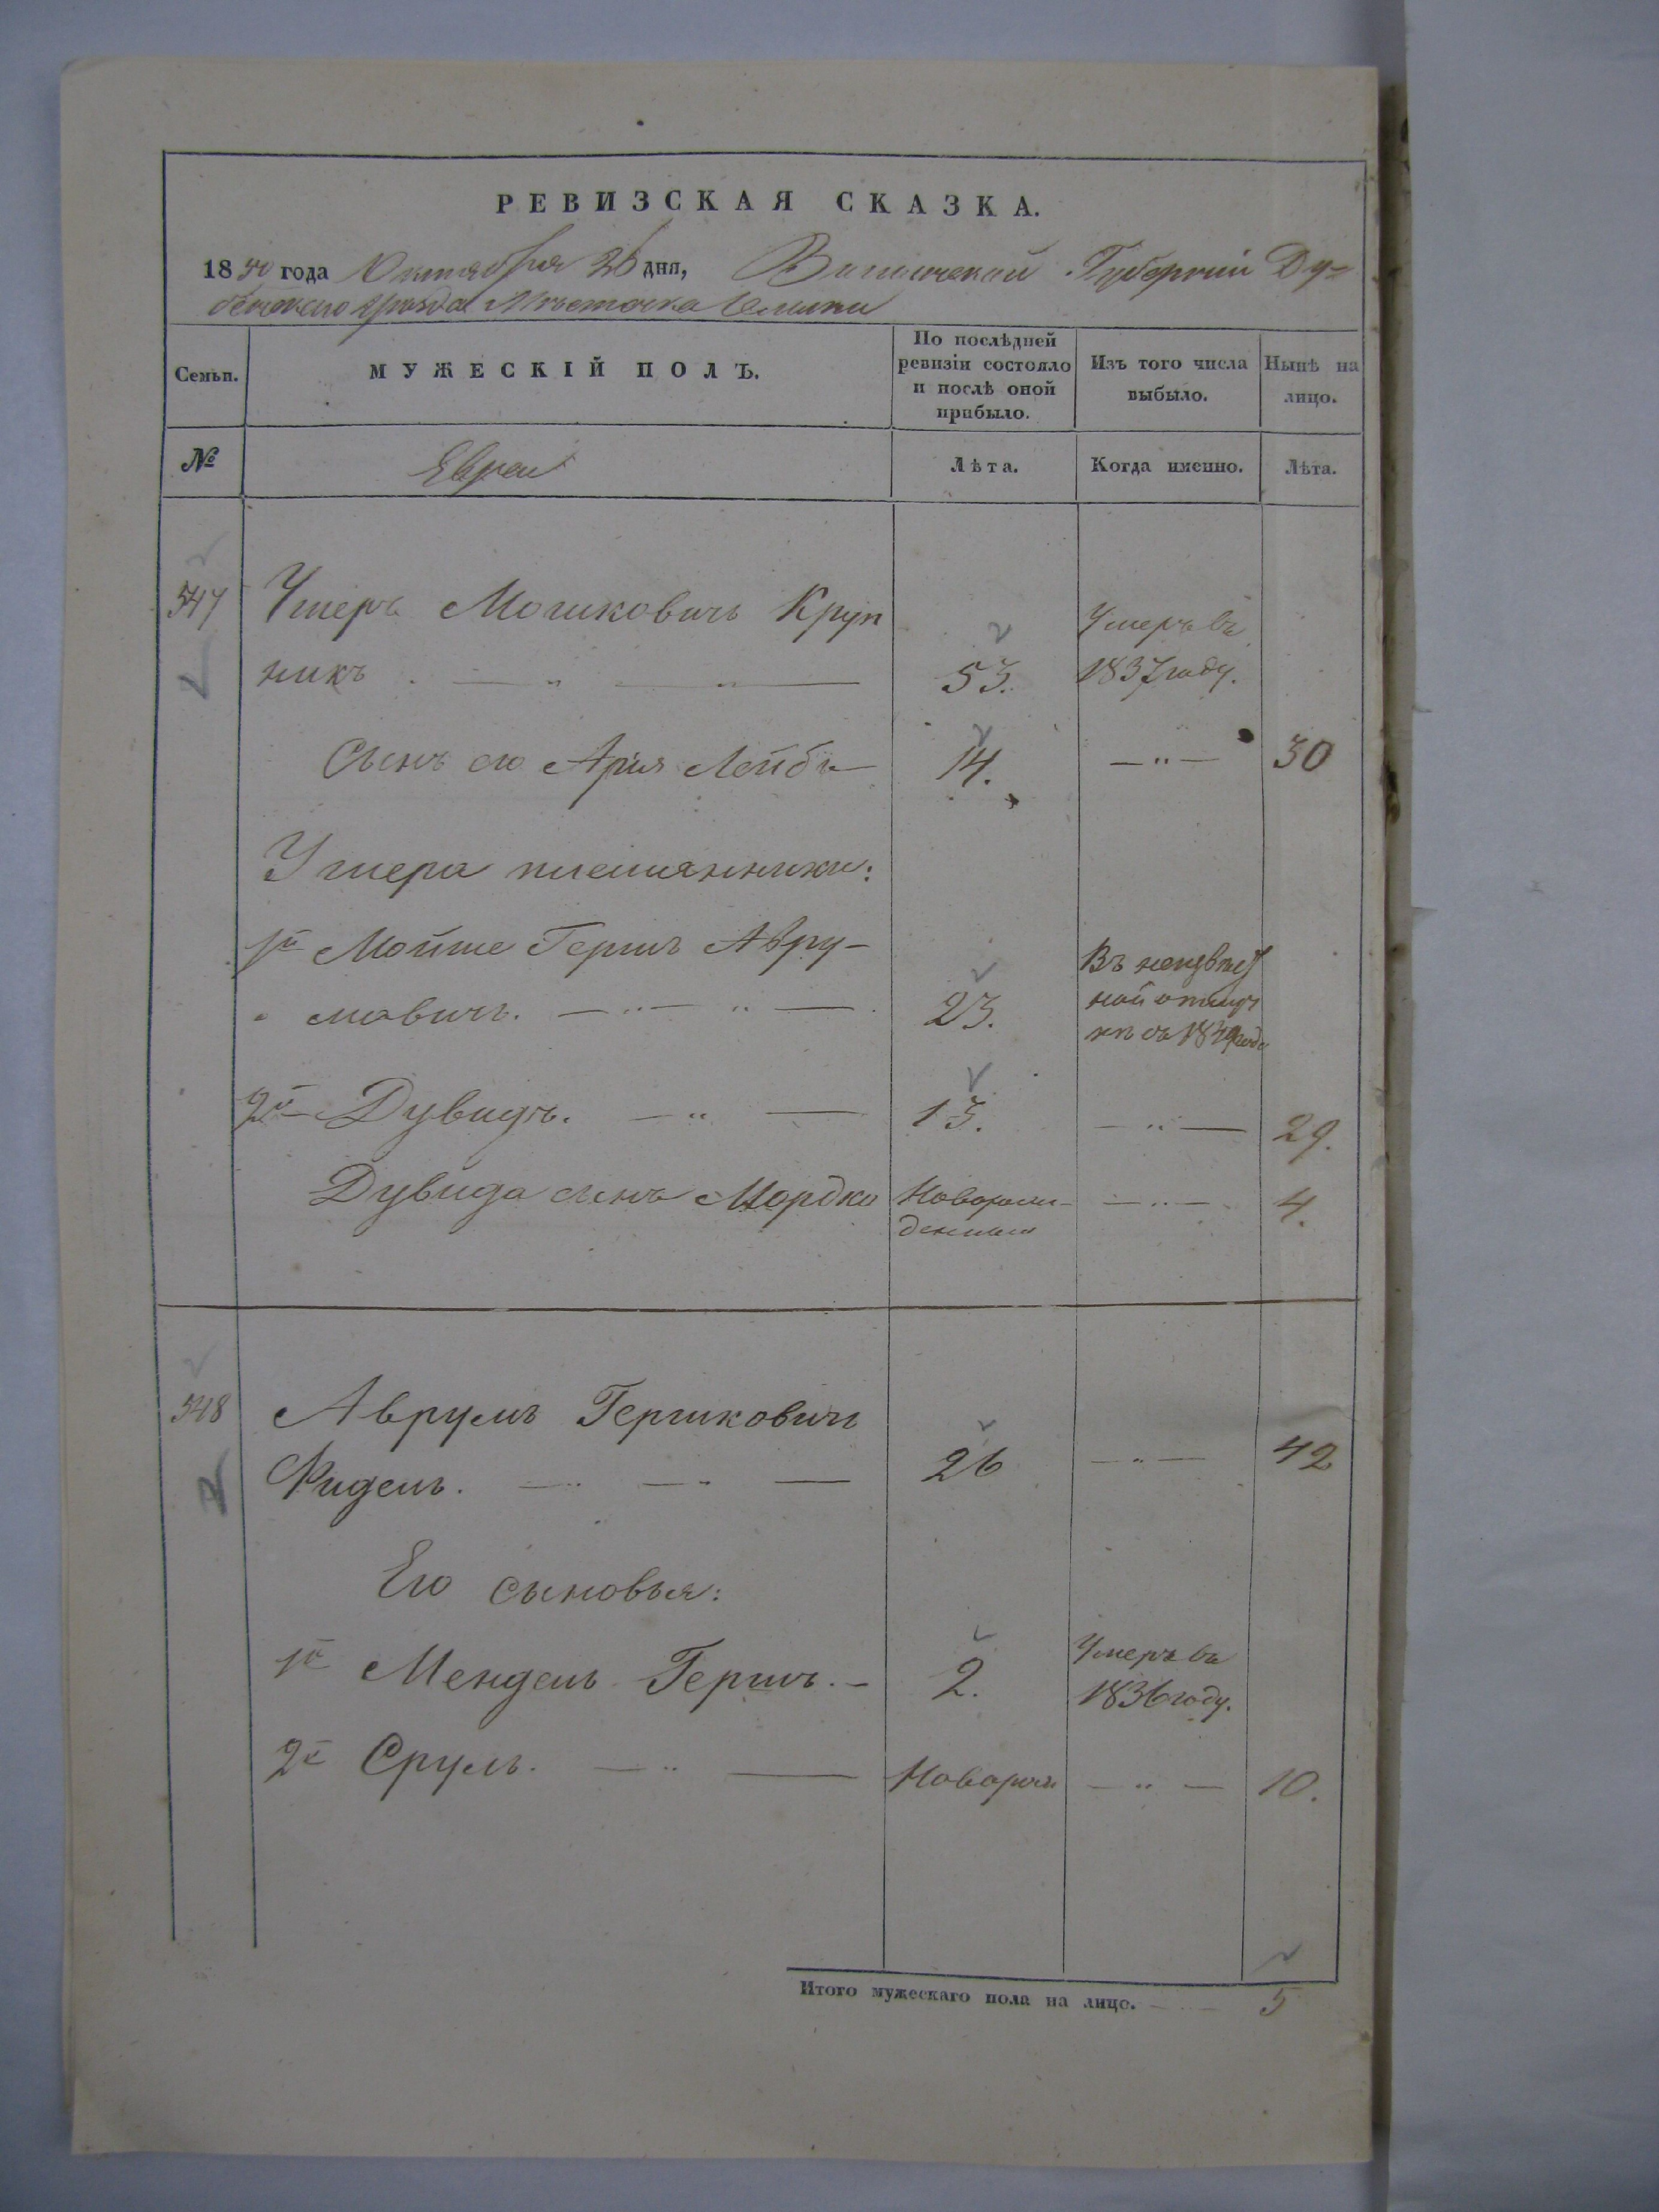 РЕВИЗСКАЯ СКАЗКА.
1850 года Октября 26 дня, Волынской Губерніи Ду-
бенскаго уѣзда Мѣстечка
Семьи.
МУЖЕСКІЙ ПОЛЪ.
По послѣдней
ревизіи состояло
и послѣ оной
прибыло.
Изъ того числа
выбыло.
Нынѣ на
лицо.
№
Евреи
Лѣта.
Когда именно.
Лѣта.
547 Ушеръ Мошковичъ Круп
никъ 53. Умеръ въ
1837 году.
Сынъ его Арія Лейбъ 14. 30
Ушера племянники:
1й Мойше Гершъ Авру-
мовичъ. 23. Въ неизвѣст
ной отлуч
кѣ съ года
2й Дувидъ. 13. 29.
Дувида сынъ Мордко Новорож-
денный 4.
548 Аврумъ Гершковичъ
Фидель. 26 42
Его сыновья:
1й Мендель Гершъ. 2. Умеръ въ
1836 году.
2й Сруль. Новорож 10.
Итого мужескаго пола на лицо. 5